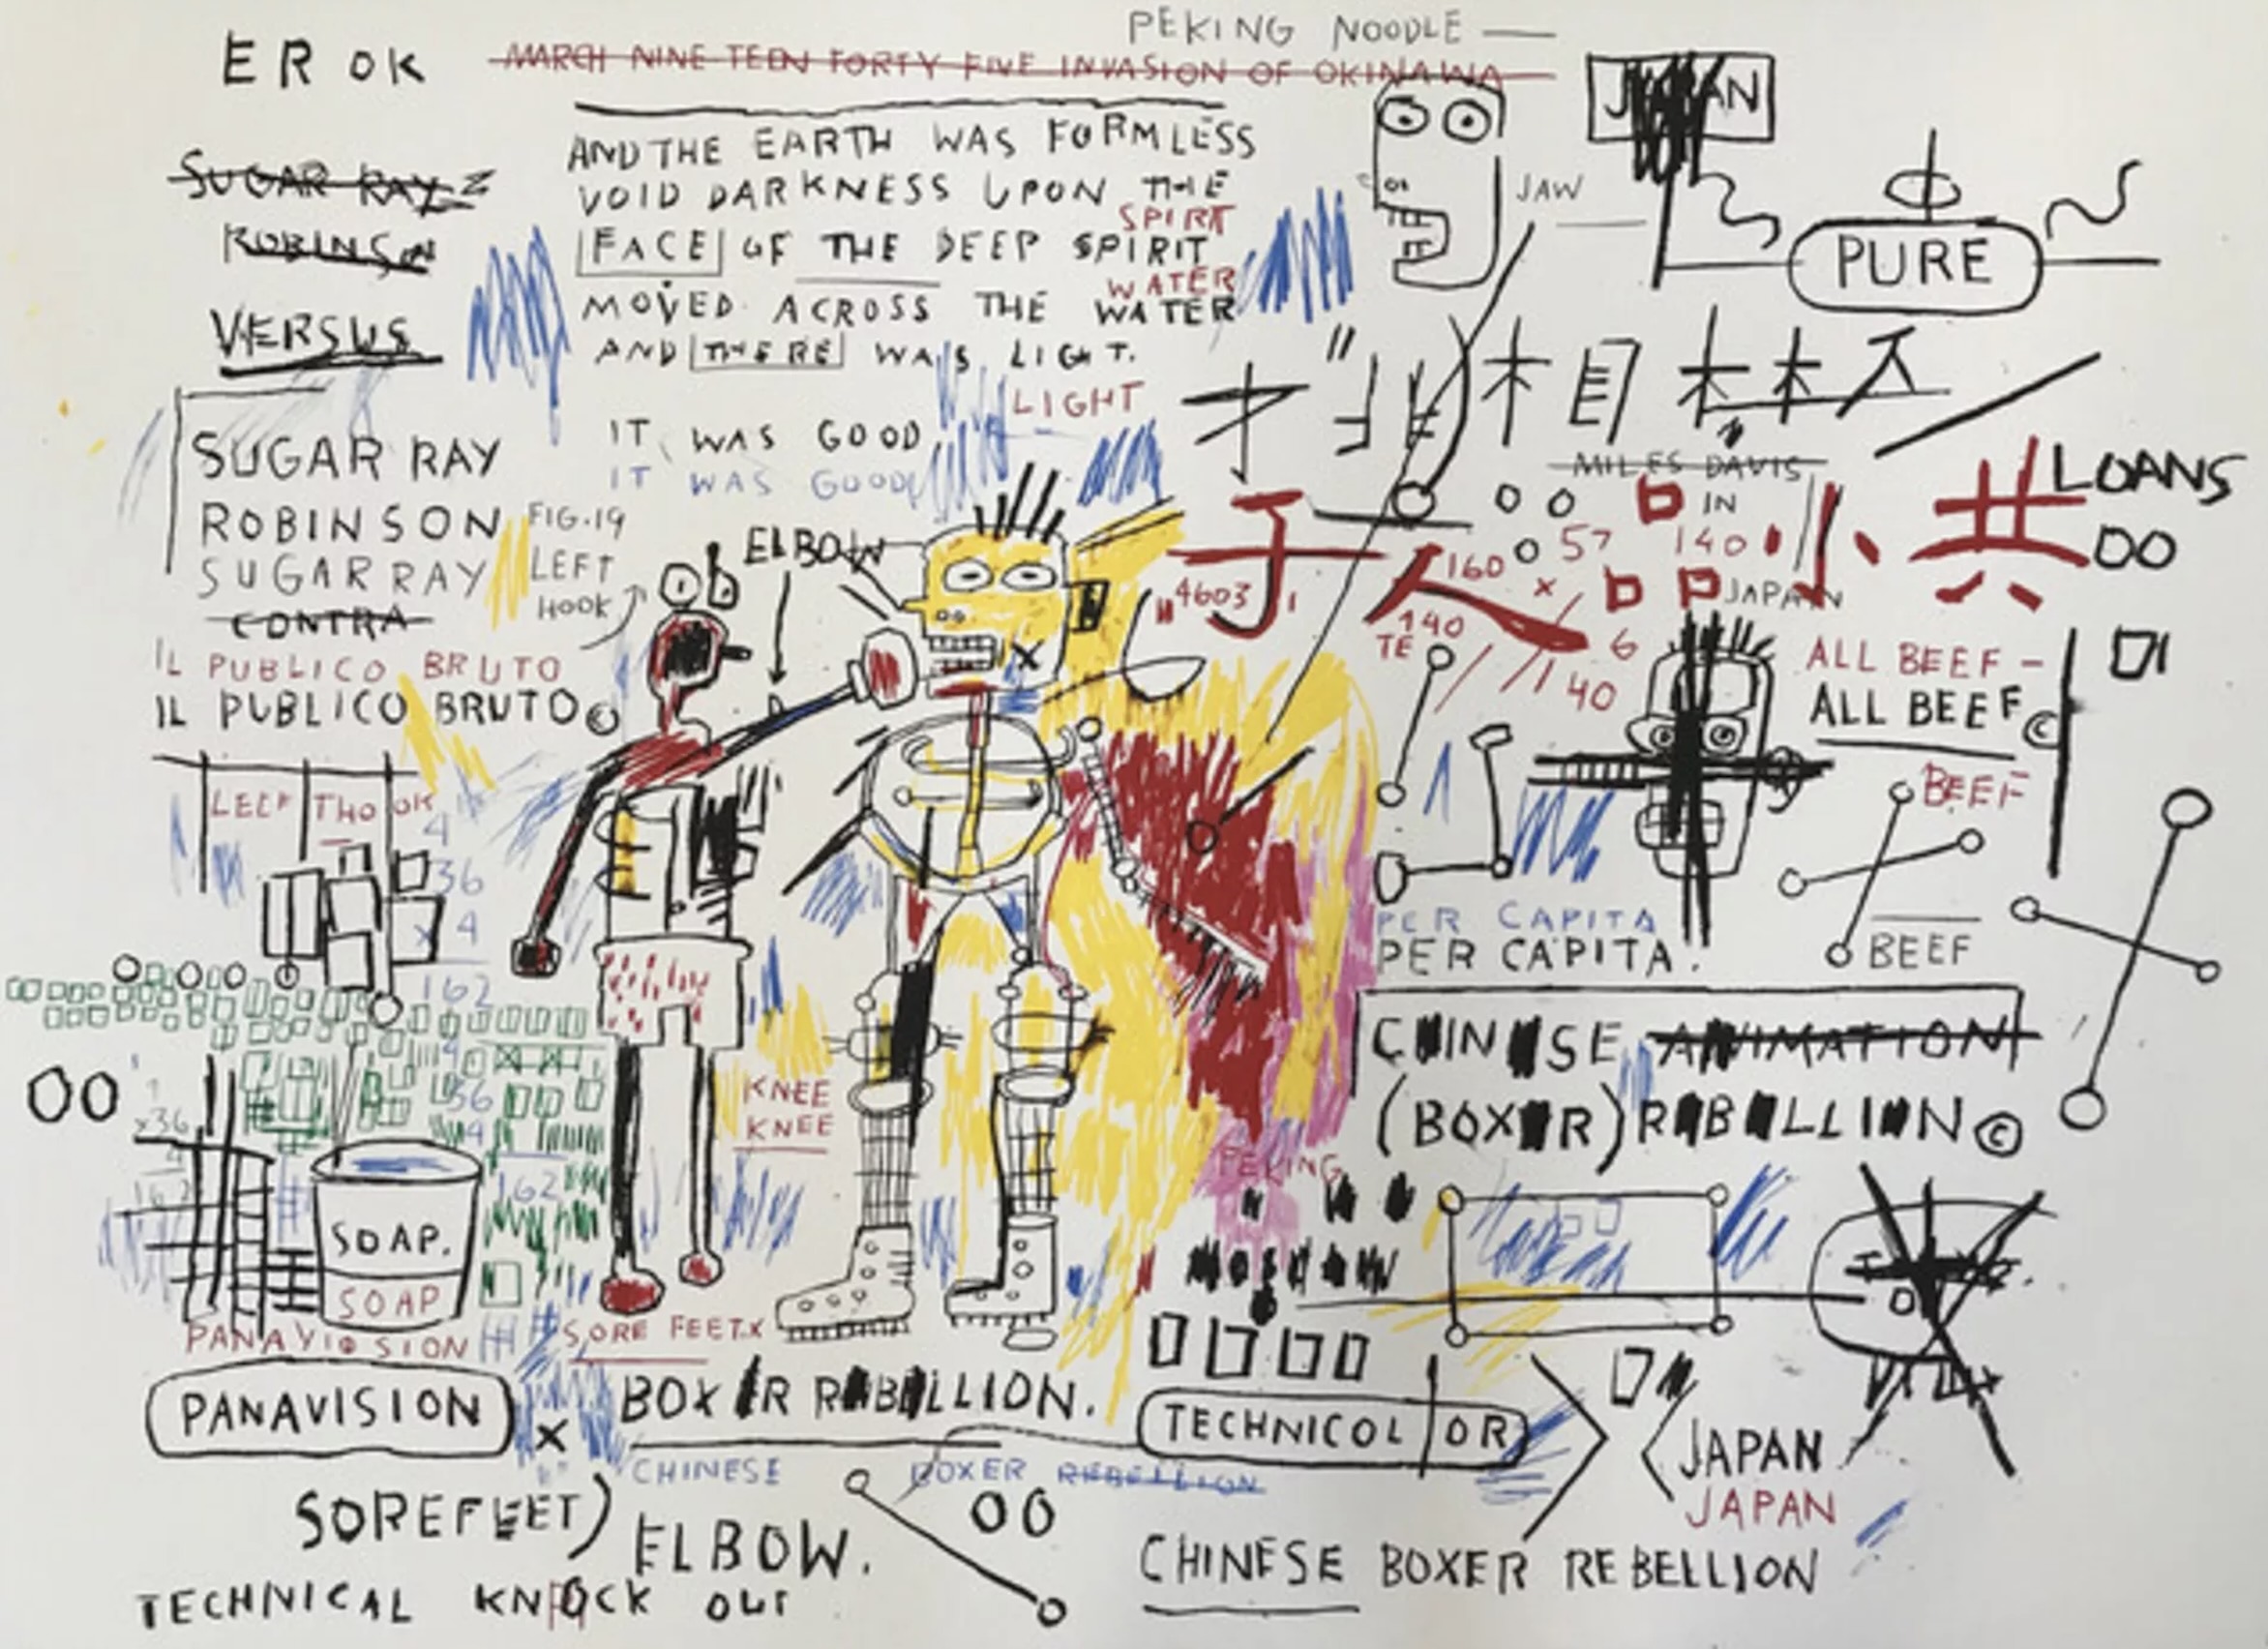 PEKING NOODLE —
ER OK
MARCH NINE TEEN FORTY FIVE INVASION OF OKINAWA
JAPAN
SUGAR RAY
ROBINSON
VERSUS
AND THE EARTH WAS FORMLESS
VOID DARKNESS UPON THE
SPIRIT
FACE OF THE DEEP SPIRIT
WATER
MOVED ACROSS THE WATER
AND THERE WAS LIGHT.
LIGHT
IT WAS GOOD
IT WAS GOOD
JAW
PURE
SUGAR RAY
ROBINSON
SUGAR RAY
CONTRA
IL PUBLICO BRUTO
IL PUBLICO BRUTO©
FIG.19
LEFT
HOOK
ELBOW
木目木木
MILES DAVIS
IN
子人口小共
LOANS
OO
57
140
160
x
"4603"
140
TE
6
40
JAPAN
ALL BEEF -
ALL BEEF©
BEEF
BEEF
LEFT HOOK
4
36
x 4
162
OO
x36
4
162
4
36
4
162
KNEE
KNEE
SOAP.
SOAP
PANAVISION
PANAVISION
SORE FEET.X
PER CAPITA
PER CAPITA.
CHINESE ANIMATION
(BOXER) REBELLION©
PEKING
MOSCOW
BOXER REBELLION.
CHINESE BOXER REBELLION
TECHNICOLOR
JAPAN
JAPAN
X
SOREFEET)
ELBOW.
OO
TECHNICAL KNOCK OUT
CHINESE BOXER REBELLION